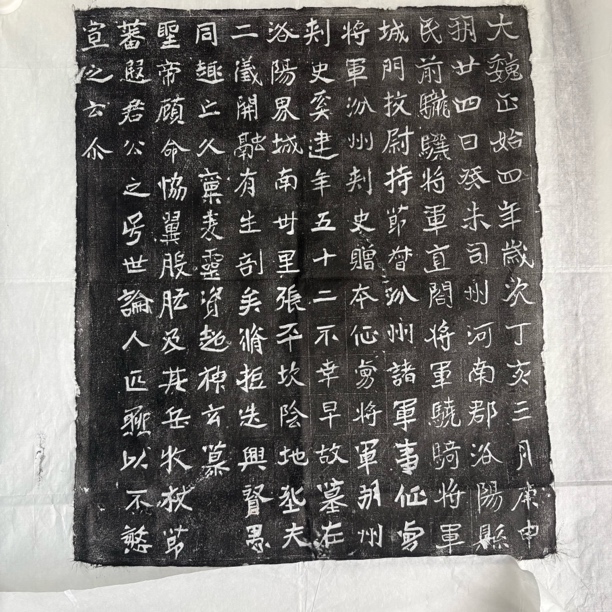 大魏正始四年歲次丁亥三月庚申
朔廿四日癸未司州河南郡洛陽縣
民前驪驤將軍直閤將軍驍騎將軍
城門挍尉持節督汾州諸軍事征虜
將軍汾州刾史贈本征虜將軍朔州
刾史奚建年五十二不幸早故墓在
洛陽界城南卅里張平坎陰地夫
二儀開融有生剖矣脩短迭興賢愚
同趣上久稟義靈資起神玄慕
聖帝顧命恊翼股肱及其岳牧杖節
蕃殿君公之号世論人匹熙以不慙
宣之云尒